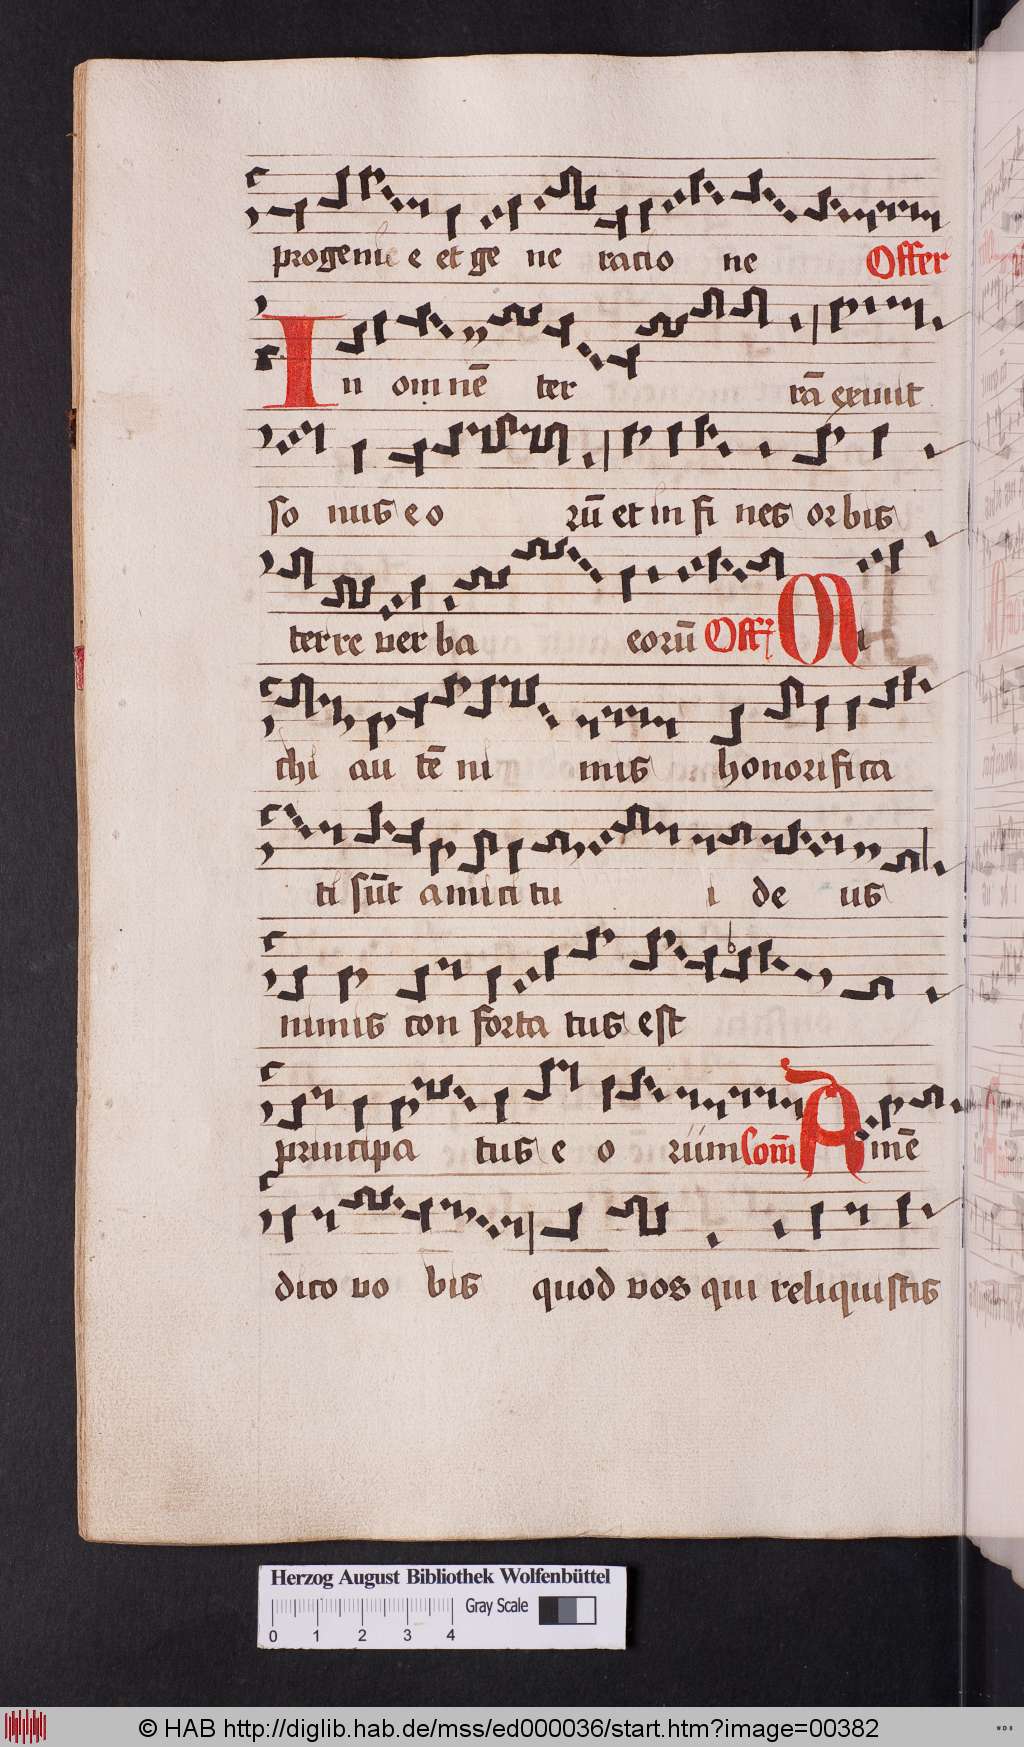 progenie e et ge ne racio ne Offer
In omnē ter rā exivit
sonus eo rū et in fi nes orbis
terre verba eorū Off Mi
chi au tē ni mis honorifica
ti sūt amici tu i de us
nimis con forta tus est
principa tus e o rum Com̄ Amē
dico vo bis quod vos qui reliquistis
Herzog August Bibliothek Wolfenbüttel
Gray Scale
0 1 2 3 4
© HAB http://diglib.hab.de/mss/ed000036/start.htm?image=00382